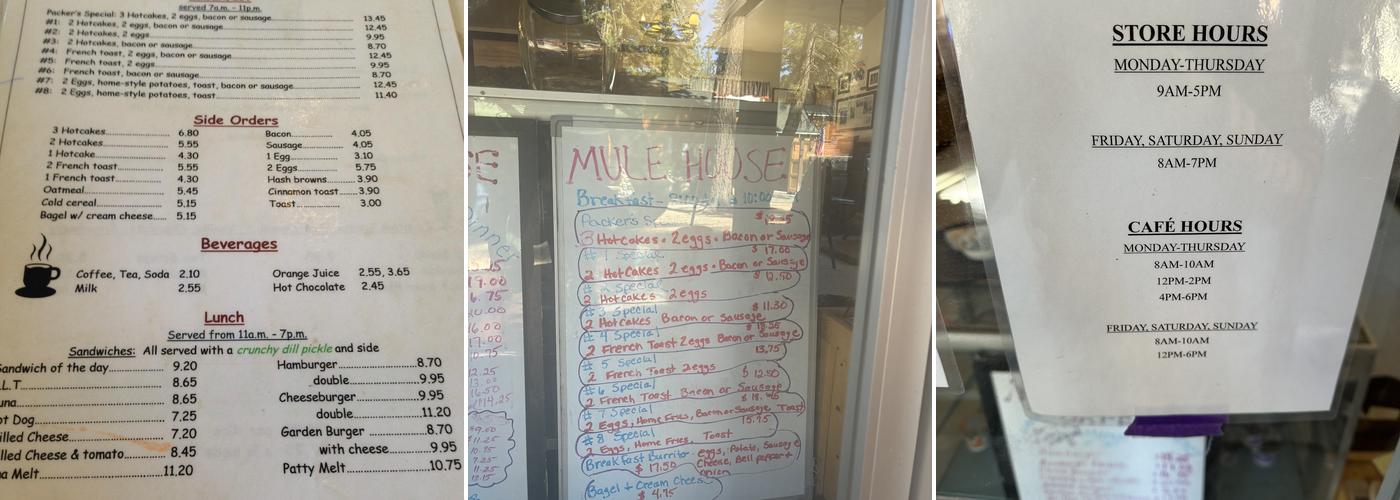 served 7a.m. - 11p.m.
Packer's Special: 3 Hotcakes, 2 eggs, bacon or sausage 13.45
#1: 2 Hotcakes, 2 eggs, bacon or sausage 12.45
#2: 2 Hotcakes, 2 eggs 9.95
#3: 2 Hotcakes, bacon or sausage 8.70
#4: French toast, 2 eggs, bacon or sausage 12.45
#5: French toast, 2 eggs 9.95
#6: French toast, bacon or sausage 8.70
#7: 2 Eggs, home-style potatoes, toast, bacon or sausage 12.45
#8: 2 Eggs, home-style potatoes, toast 11.40
Side Orders
3 Hotcakes 6.80
2 Hotcakes 5.55
1 Hotcake 4.30
2 French toast 5.55
1 French toast 4.30
Oatmeal 5.45
Cold cereal 5.15
Bagel w/ cream cheese 5.15
Bacon 4.05
Sausage 4.05
1 Egg 3.10
2 Eggs 5.75
Hash browns 3.90
Cinnamon toast 3.90
Toast 3.00
Beverages
Coffee, Tea, Soda 2.10
Milk 2.55
Orange Juice 2.55, 3.65
Hot Chocolate 2.45
Lunch
Served from 11a.m. - 7p.m.
Sandwiches: All served with a crunchy dill pickle and side
Sandwich of the day 9.20
L.T 8.65
una 8.65
ot Dog 7.25
illed Cheese 7.20
illed Cheese & tomato 8.45
a Melt 11.20
Hamburger 8.70
double 9.95
Cheeseburger 9.95
double 11.20
Garden Burger 8.70
with cheese 9.95
Patty Melt 10.75
MULE HOUSE
Breakfast - 10:00
Packer's
3 Hotcakes • 2 eggs • Bacon or Sausage
# 1 Special $ 17.00
2 HotCakes 2 eggs • Bacon or Sausage
# 2 Special $ 12.50
2 Hotcakes 2 eggs
# 3 Special $ 11.30
2 Hotcakes Bacon or Sausage
# 4 Special
2 French Toast 2 eggs Bacon or Sausage
# 5 Special 13.75
2 French Toast 2 eggs
# 6 Special $ 12.50
2 French Toast Bacon or Sausage
# 7 Special
2 Eggs, Home Fries, Bacon or Sausage Toast
# 8 Special 15.75
2 Eggs, Home Fries, Toast
Breakfast Burrito eggs, Potato, Sausage
$ 17.50 Cheese, Bell pepper +
onion
Bagel + Cream Cheese
$ 4.75
STORE HOURS
MONDAY-THURSDAY
9AM-5PM
FRIDAY, SATURDAY, SUNDAY
8AM-7PM
CAFÉ HOURS
MONDAY-THURSDAY
8AM-10AM
12PM-2PM
4PM-6PM
FRIDAY, SATURDAY, SUNDAY
8AM-10AM
12PM-6PM